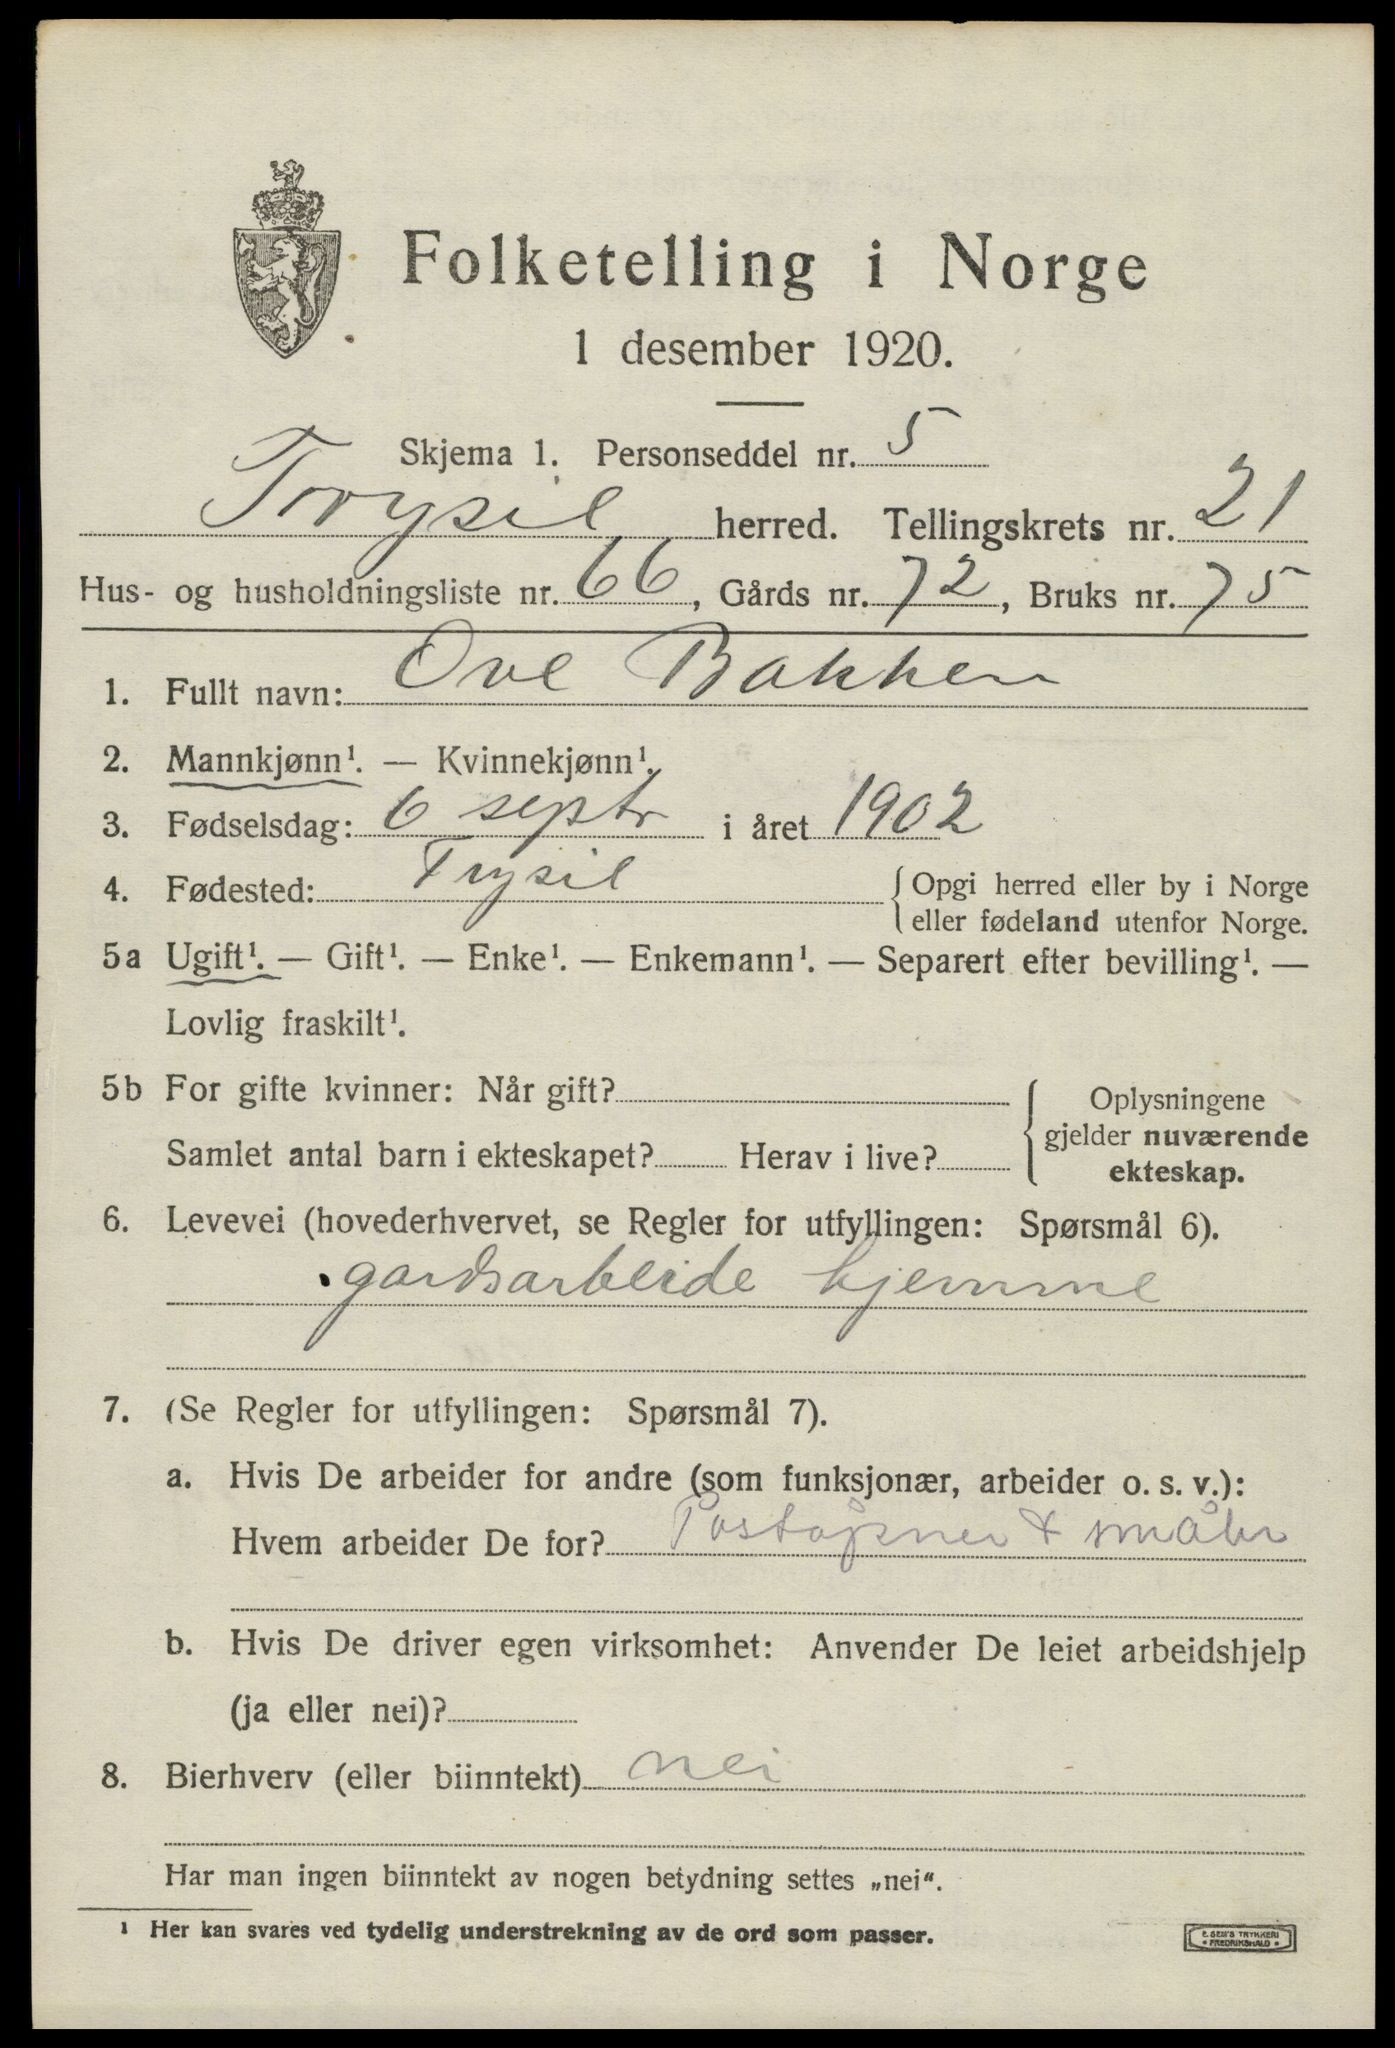 Folketelling i Norge
1 desember 1920.
Skjema 1. Personseddel nr. 5
Trysil herred. Tellingskrets nr. 21
Hus- og husholdningsliste nr. 66, Gårds nr. 72, Bruks nr. 75
1. Fullt navn: Ove Bakken
2. Mannkjønn¹. — Kvinnekjønn¹.
3. Fødselsdag: 6 septr i året 1902
4. Fødested: Trysil {Opgi herred eller by i Norge
eller fødeland utenfor Norge.
5a Ugift¹. — Gift¹. — Enke¹. — Enkemann¹. — Separert efter bevilling¹. —
Lovlig fraskilt¹.
5b For gifte kvinner: Når gift? { Oplysningene
gjelder nuværende
Samlet antal barn i ekteskapet? Herav i live?
ekteskap.
6. Levevei (hovederhvervet, se Regler for utfyllingen: Spørsmål 6).
gardsarbeide hjemme
7. (Se Regler for utfyllingen: Spørsmål 7).
a. Hvis De arbeider for andre (som funksjonær, arbeider o. s. v.):
Hvem arbeider De for? Poståpner & småbr
b. Hvis De driver egen virksomhet: Anvender De leiet arbeidshjelp
(ja eller nei)?
8. Bierhverv (eller biinntekt) nei
Har man ingen biinntekt av nogen betydning settes „nei“.
¹ Her kan svares ved tydelig understrekning av de ord som passer.
E. SEM'S TRYKKERI
• FREDRIKSHALD •